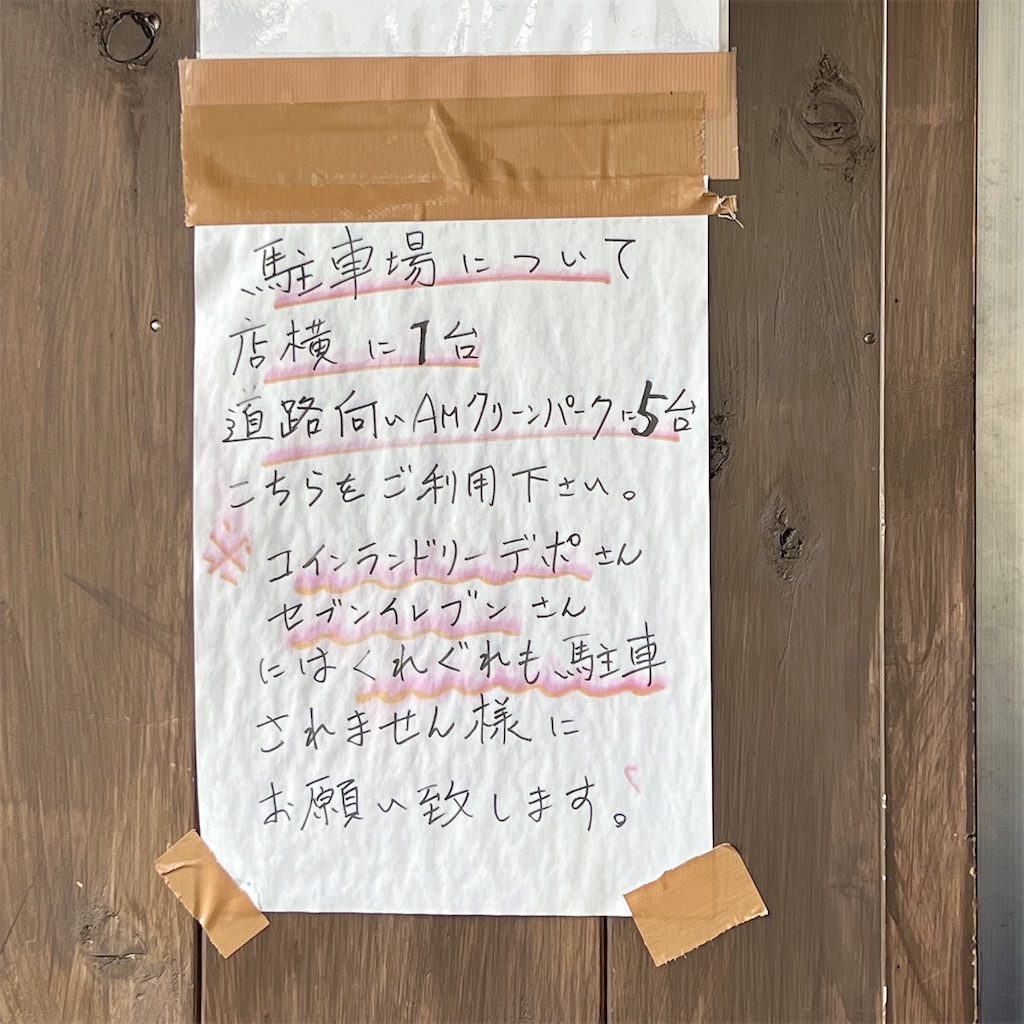 駐車場について
店横に1台
道路向いAMクリーンパークに5台
こちらをご利用下さい。
※ コインランドリーデポさん
セブンイレブンさん
にはくれぐれも駐車
されません様に
お願い致します。